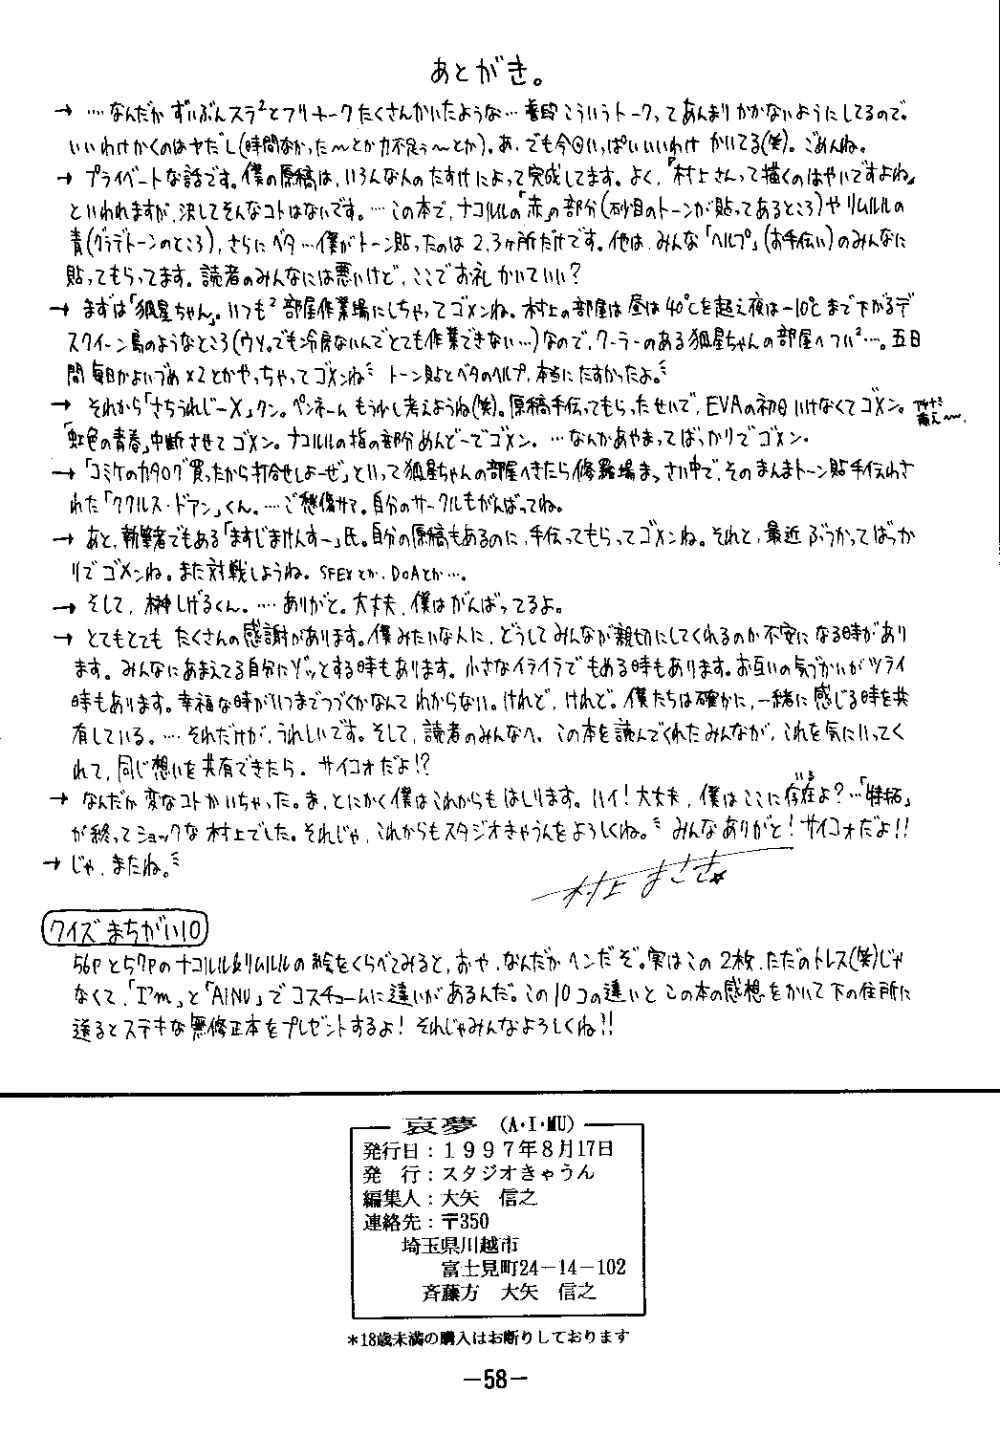 あとがき。
→ …なんだか ずいぶんスラ²とフリートークたくさんかいたような… 普段こういうトークってあんまりかかないようにしてるので。
いいわけかくのはヤだし(時間なかった〜とか力不足ぅ〜とか)。あ、でも今回いっぱいいいわけ かいてる(笑)。ごめんね。
→ プライベートな話です。僕の原稿は、いろんな人のたすけによって完成してます。よく、「村上さんって描くのはやいですよね」
といわれますが、決してそんなコトはないです。…この本で、ナコルルの「赤」の部分(砂目のトーンが貼ってあるところ)やリムルルの
青(グラデトーンのところ)、さらにベタ…僕がトーン貼ったのは 2,3ヶ所だけです。他は、みんな「ヘルプ」(お手伝い)のみんなに
貼ってもらってます。読者のみんなには悪いけど、ここでお礼 かいていい?
→ まずは「狐星ちゃん」。いつも² 部屋作業場にしちゃってゴメンね。村上の部屋は昼は40℃を超え夜は-10℃まで下がるデ
スクイーン島のようなところ(ウソ。でも冷房ないんでとても作業できない…)なので、クーラーのある狐星ちゃんの部屋へつい²…。五日
間毎日かよいづめ×2とかやっちゃってゴメンね トーン貼とベタのヘルプ、本当にたすかったよ。
→ それから「さちうれじーX」クン。ペンネームもう少し考えようね(笑)。原稿手伝ってもらったせいで、EVAの初日いけなくてゴメン。
「虹色の青春」中断させてゴメン。ナコルルの指の部分めんどーでゴメン。…なんかあやまってばっかりでゴメン。
→「コミケのカタログ買ったから打合せしよーぜ」といって狐星ちゃんの部屋へきたら修羅場まっさい中で、そのまんまトーン貼手伝わさ
れた「ククルス・ドアン」くん。…ご愁傷サマ。自分のサークルもがんばってね。
→ あと、執筆者でもある「ますじまけんすー」氏。自分の原稿もあるのに、手伝ってもらってゴメンね。それと、最近ぶつかってばっか
りでゴメンね。また対戦しようね。SFEXとか、DOAとか…。
→ そして、榊しげるくん。…ありがと。大丈夫、僕はがんばってるよ。
→ とてもとても たくさんの感謝があります。僕みたいな人に、どうしてみんなが親切にしてくれるのか不安になる時があり
ます。みんなにあまえてる自分にゾッとする時もあります。小さなイライラでもめる時もあります。お互いの気づかいがツライ
時もあります。幸福な時がいつまでつづくかなんてわからない。けれど、けれど。僕たちは確かに、一緒に感じる時を共
有している。…それだけが、うれしいです。そして、読者のみんなへ、この本を読んでくれたみんなが、これを気にいってく
れて、同じ想いを共有できたら、サイコォだよ!?
→ なんだか変なコトかいちゃった。ま、とにかく僕はこれからもはしります。ハイ!大丈夫、僕はここに存在(いる)よ?…「特拓」
が終ってショックな村上でした。それじゃ、これからもスタジオきゃうんをよろしくね。 みんなありがと!サイコォだよ!!
→ じゃ、またね。
村上 まさき
クイズ まちがい10
56Pと57Pのナコルル&リムルルの絵をくらべてみると、おや、なんだかヘンだぞ。実はこの2枚、ただのトレス(笑)じゃ
なくて、「I'm」と「AiNU」でコスチュームに違いがあるんだ。この10コの違いとこの本の感想をかいて下の住所に
送るとステキな無修正本をプレゼントするよ!それじゃみんなよろしくね!!
哀夢 (A・I・MU)
発行日：1997年8月17日
発 行：スタジオきゃうん
編集人：大矢 信之
連絡先：〒350
埼玉県川越市
富士見町24-14-102
斉藤方 大矢 信之
*18歳未満の購入はお断りしております
-58-